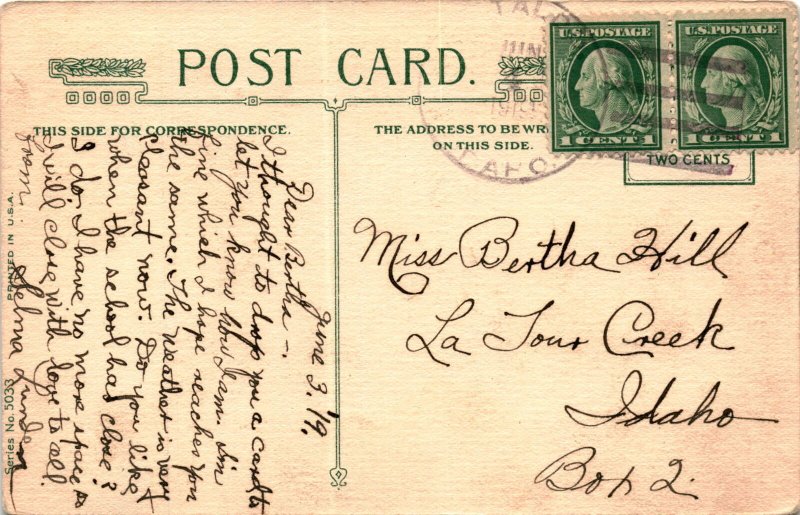 POST CARD.
THIS SIDE FOR CORRESPONDENCE.
THE ADDRESS TO BE WRI
ON THIS SIDE.
U.S. POSTAGE
1 CENT 1
U.S. POSTAGE
1 CENT 1
TWO CENTS
JUN
IDAHO
June 3. '19.
Dear Bertha -.
I thought to drop you a card to
let you know how I am. I'm
fine which I hope reaches you
the same. The weather is very
pleasant now. Do you like it
when the school has close?
I do. I have no more space so
I will close with love to all.
from
Selma Lunde
Miss Bertha Hill
La Tour Creek
Idaho
Box 2.
Series No. 5033
PRINTED IN U.S.A.